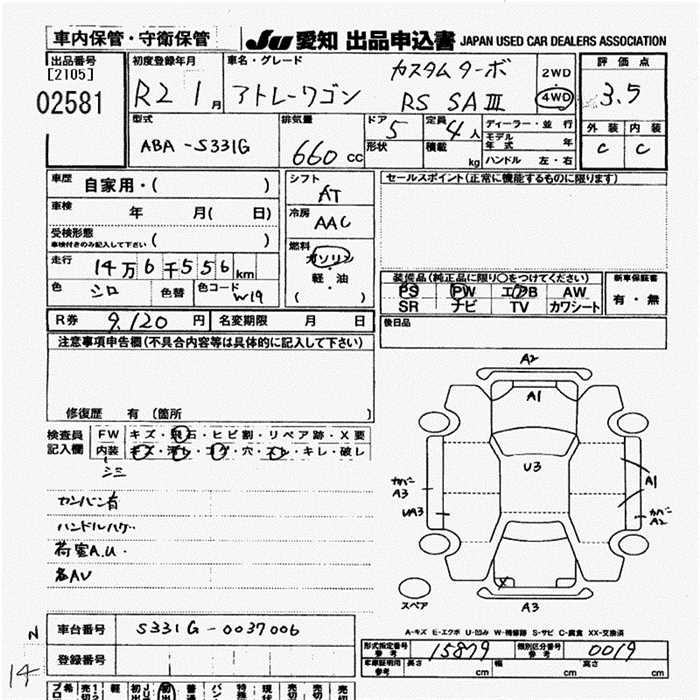 車内保管・守衛保管
JU 愛知 出品申込書 JAPAN USED CAR DEALERS ASSOCIATION
出品番号
[2105]
02581
初度登録年月
R2 1月
車名・グレード
アトレーワゴン
カスタムターボ
RS SAⅢ
2WD
4WD
評価点
3.5
外装 内装
C C
型式
ABA-S331G
排気量
660cc
ドア 5
形状
定員 4人
積載 kg
ディーラー・並行
モデル年式 年
ハンドル 左・右
車歴
自家用・( )
車検 年 月( 日)
受検形態
車検付きのみ記入して下さい ( )
走行 14万6千556km
色 シロ 色替 色コード W19
シフト
AT
冷房
AAC
燃料
ガソリン
軽・油
( )
セールスポイント(正常に機能するものに限ります)
装備品(純正品に限り○をつけてください)
PS PW エアB AW
SR ナビ TV カワシート
新車保証書
有・無
R券 9,120円 名変期限 月 日
後日品
注意事項申告欄(不具合内容等は具体的に記入して下さい)
修復歴 有 (箇所 )
検査員記入欄
FW キズ・飛石・ヒビ割・リペア跡・X要
内装 キズ・汚レ・コゲ・穴・スレ・キレ・破レ
シミ
カンバン有
ハンドルハゲ・
荷室A.U・
各AU
A2
A1
U3
カバーA3
UA3
A1
カバーA2
X
A3
スペア
A-キズ E-エクボ U-凹み W-補修跡 S-サビ C-腐食 XX-交換済
N
14
車台番号 S331G-0037006
登録番号
型式指定番号参考 15879 類別区分番号参考 0019
車庫証明用参考 長さ cm 幅 cm 高さ cm